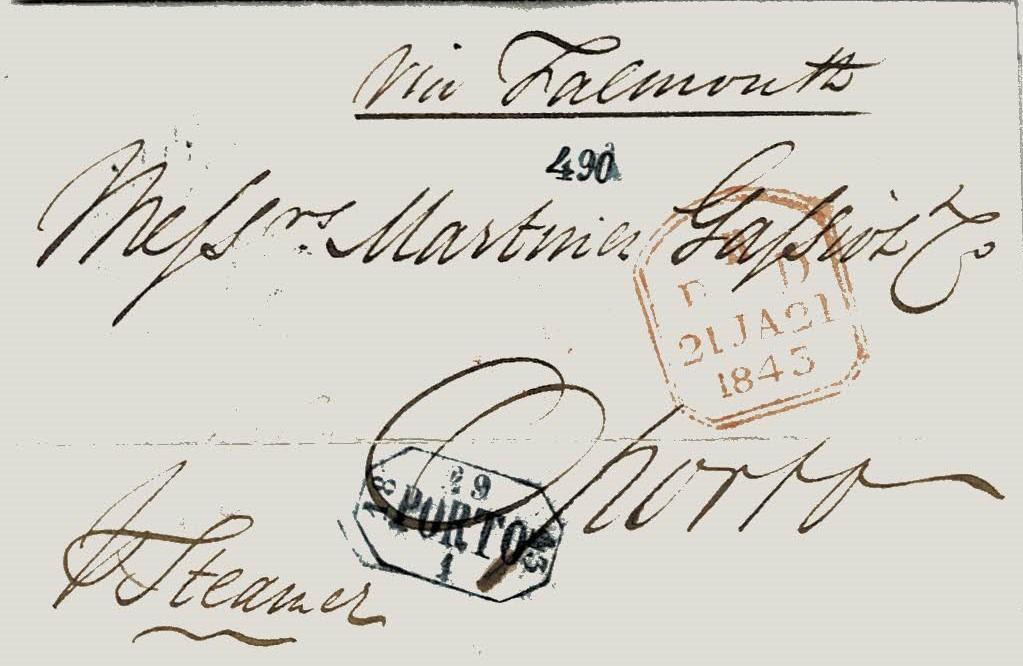 via Falmouth
490
Messrs Martinez Gassiot & Co
21 JA 21
1845
Oporto
29
18 PORTO 45
1
p Steamer